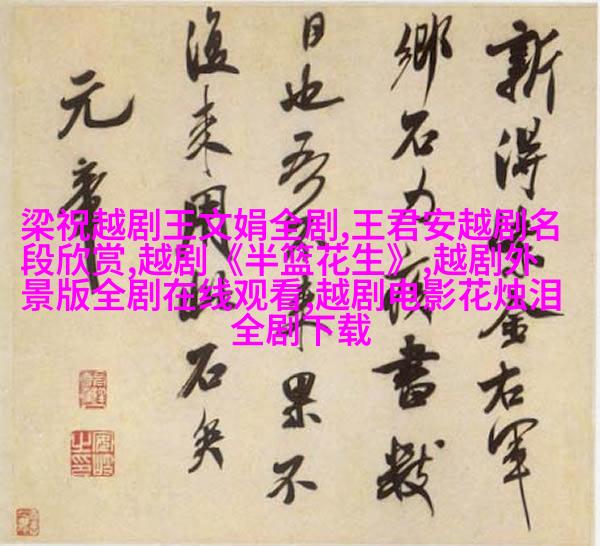 新得紫金右軍
鄉石力疾書數
日也吾不來果不
復來用此石矣
元章
梁祝越剧王文娟全剧,王君安越剧名
段欣赏,越剧《半篮花生》,越剧外
景版全剧在线观看,越剧电影花烛泪
全剧下载